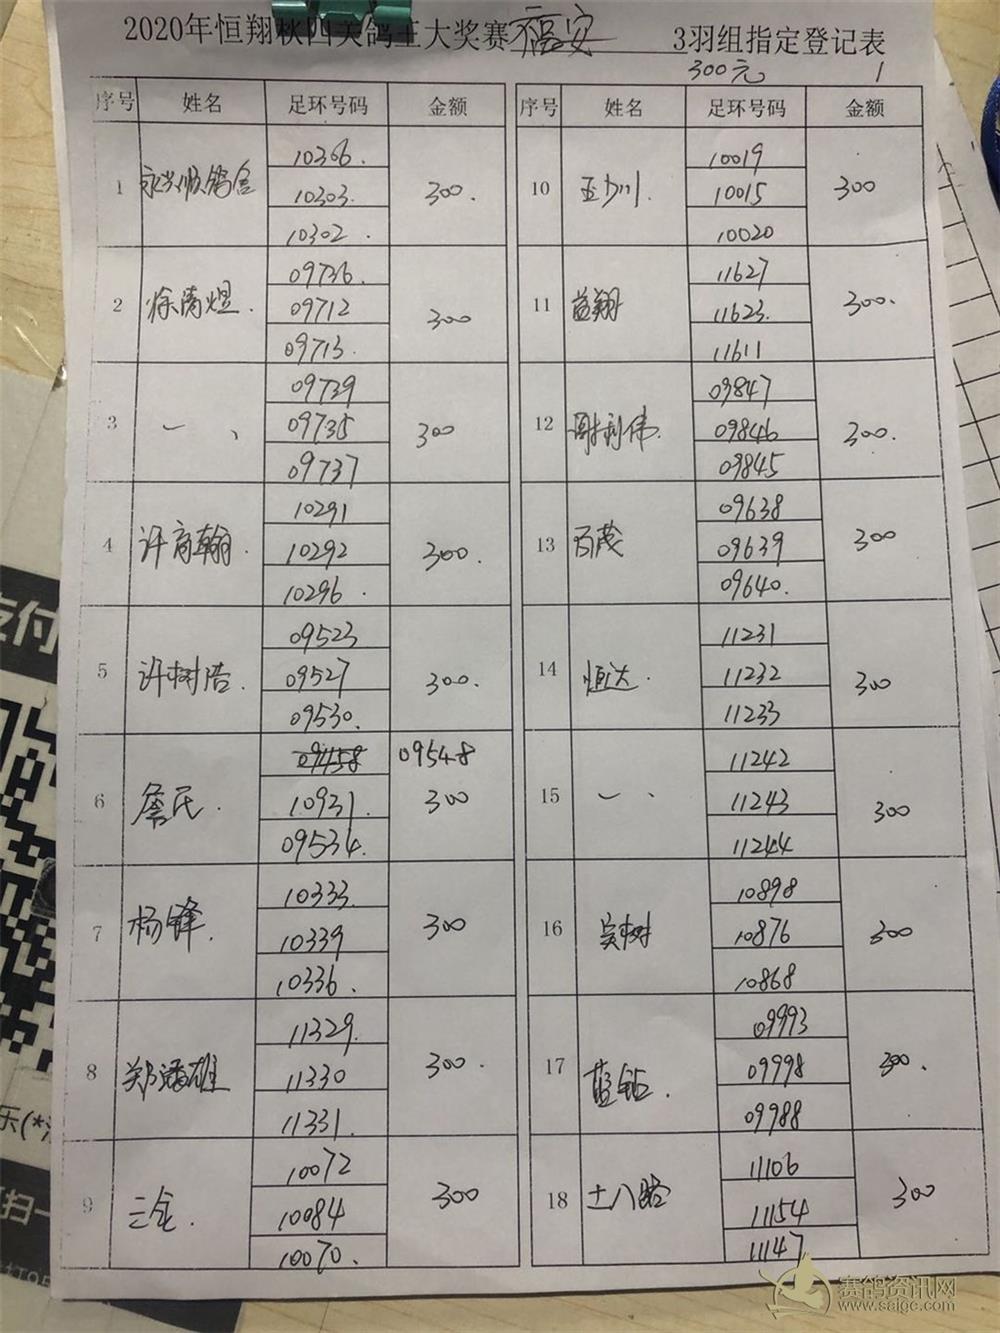 2020年恒翔秋四关鸽王大奖赛 福安 3羽组指定登记表
300元 1
序号 姓名 足环号码 金额 序号 姓名 足环号码 金额
1 永兴顺鸽舍 10366. 10303. 10302. 300.
2 徐清煜. 09736. 09712 09713. 300
3 09739 09735 09737 300
4 许高翰. 10291 10292 10296. 300.
5 许树浩. 09523 09527 09530. 300.
6 詹氏. 09548 10931. 09534. 300
7 杨锋. 10333. 10339 10336. 300
8 郑潘雄 11329. 11330 11331. 300.
9 三金. 10072 10084 10070. 300
10 10019 10015 10020 300
11 益翔 11627 11623. 11611 300.
12 谢利伟. 09847 09846 09845 300.
13 百茂 09638 09639 09640. 300
14 恒达. 11231 11232 11233 300
15 11242 11243 11244 300
16 吴树 10898 10876 10868 300
17 蓝钻. 09993 09998 09988 300.
18 十八路 11106 11154 11147 300
支付
乐(*
扫一
赛鸽资讯网
www.saige.com